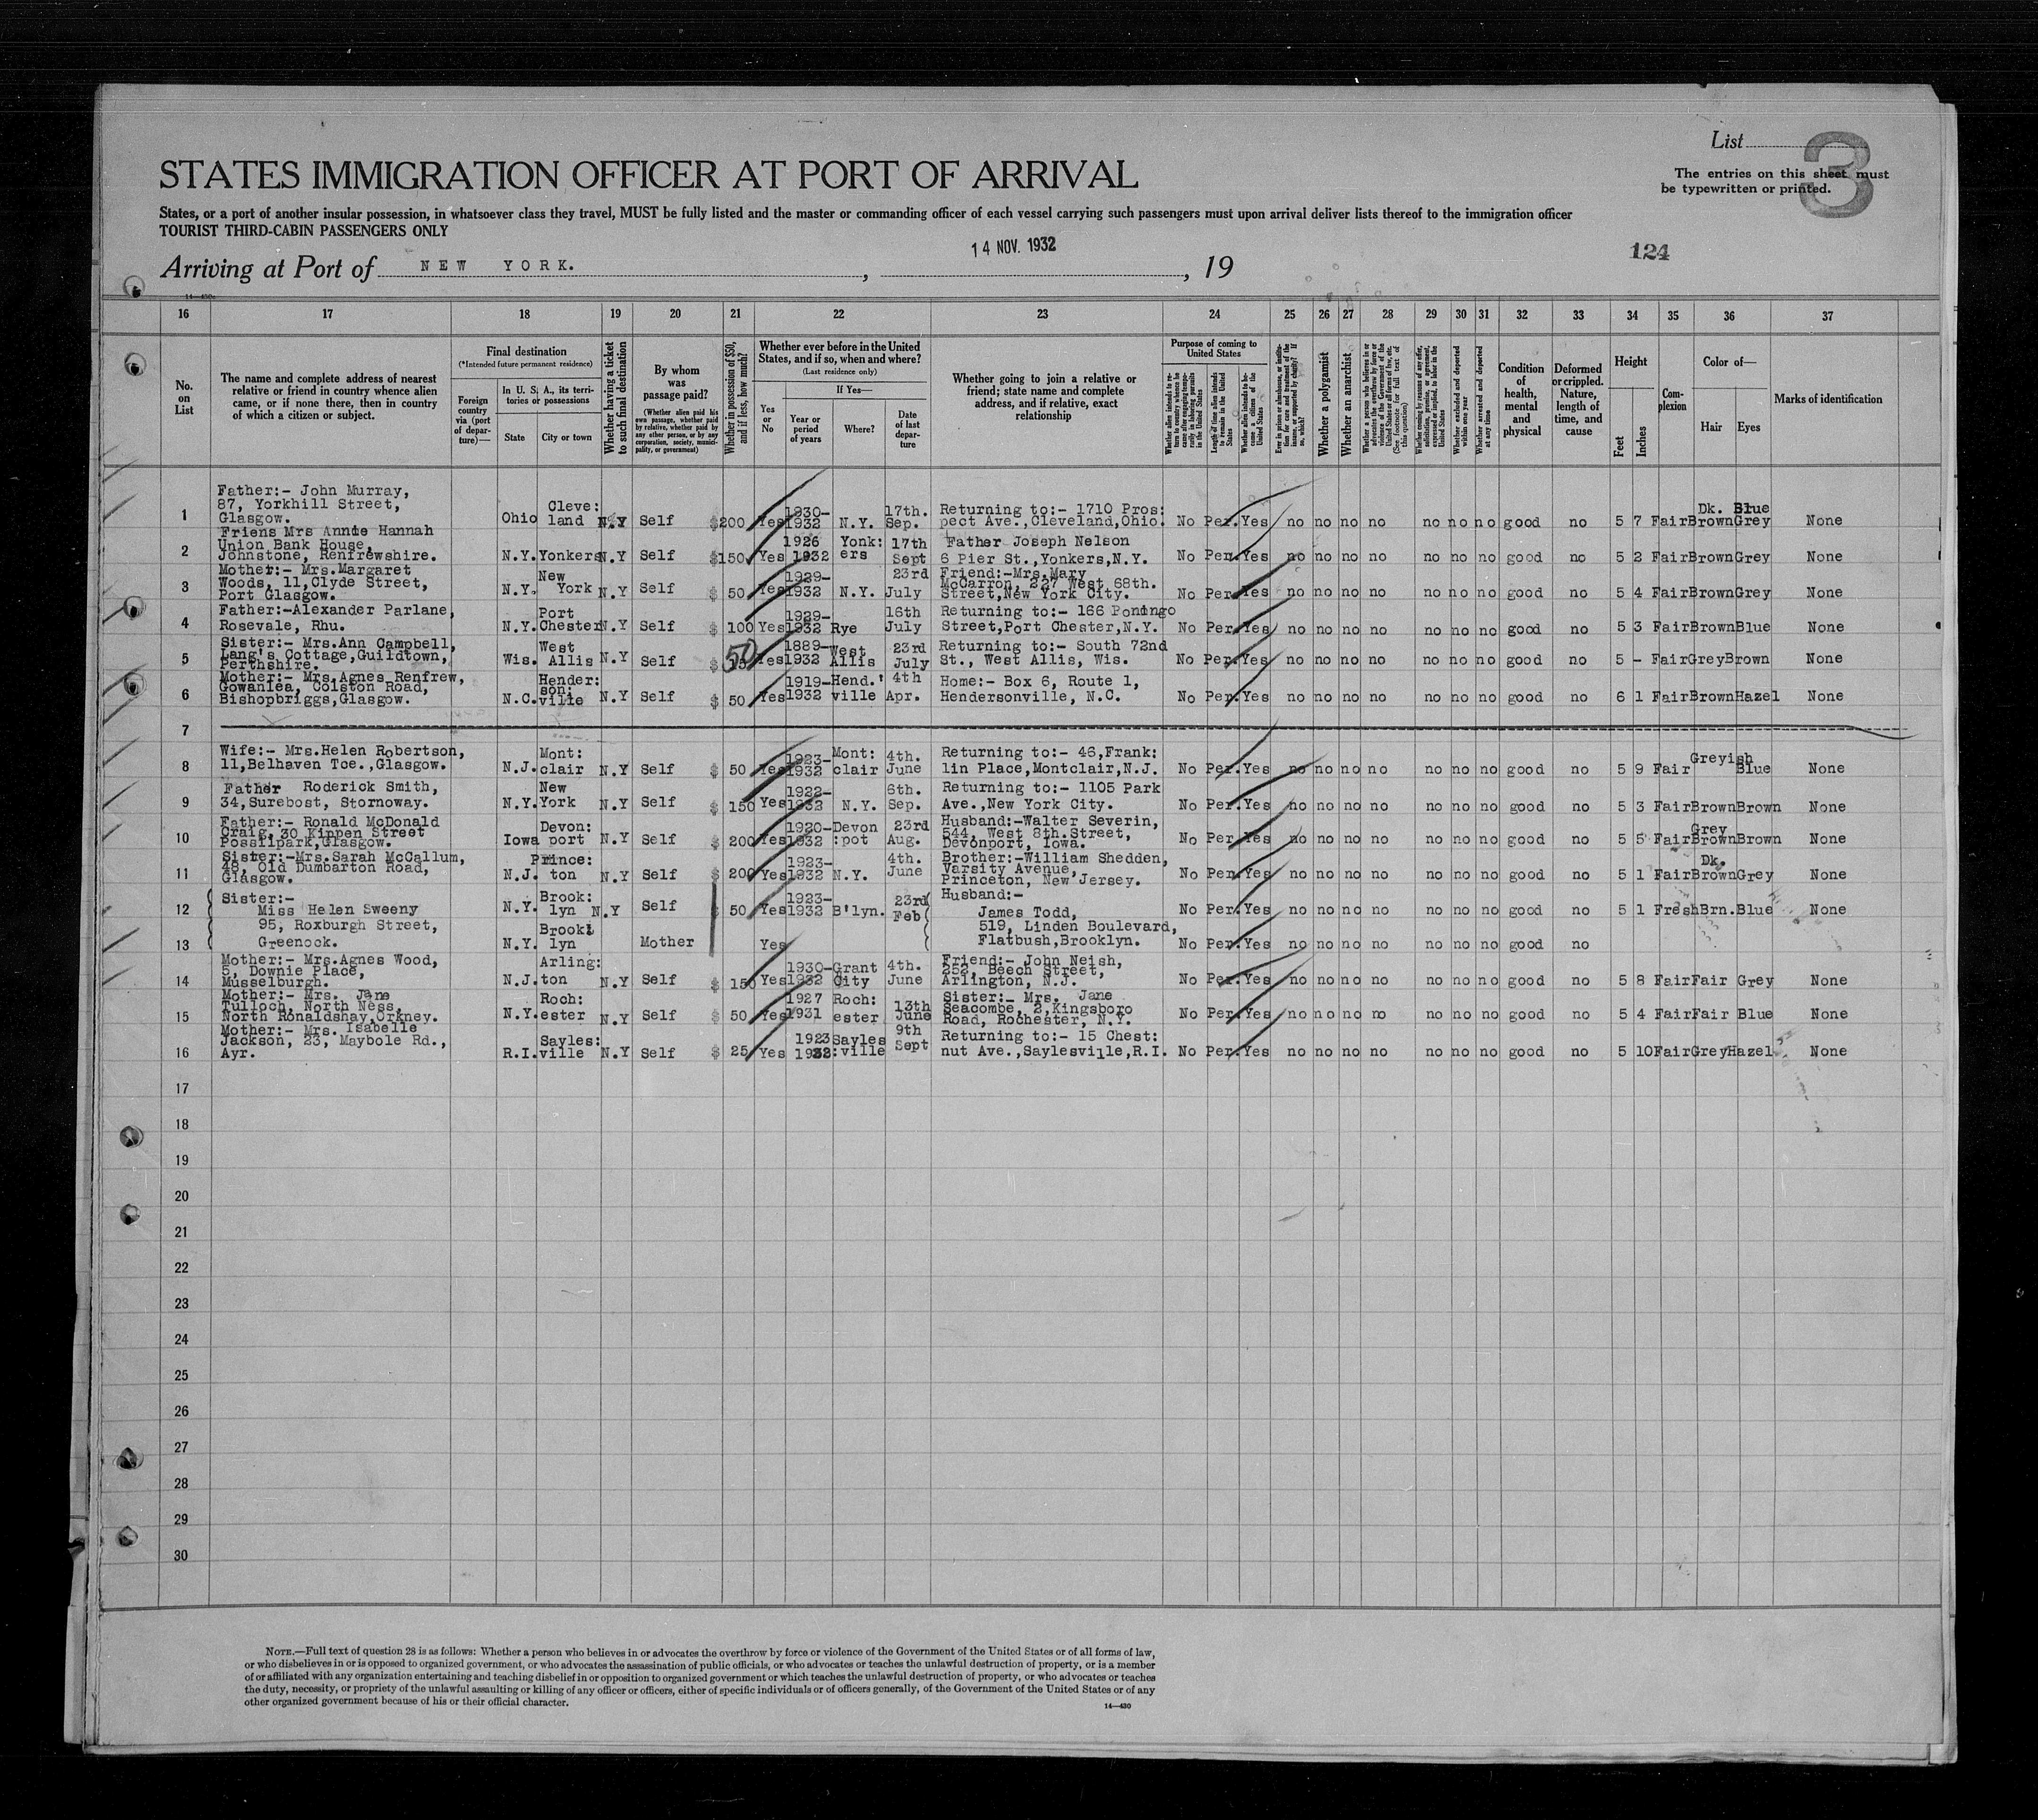 List
3
The entries on this sheet must
be typewritten or printed.
STATES IMMIGRATION OFFICER AT PORT OF ARRIVAL
States, or a port of another insular possession, in whatsoever class they travel, MUST be fully listed and the master or commanding officer of each vessel carrying such passengers must upon arrival deliver lists thereof to the immigration officer
TOURIST THIRD-CABIN PASSENGERS ONLY
14 NOV. 1932
124
Arriving at Port of NEW YORK. , , 19
16 17 18 19 20 21 22 23 24 25 26 27 28 29 30 31 32 33 34 35 36 37
No.
on
List
The name and complete address of nearest
relative or friend in country whence alien
came, or if none there, then in country
of which a citizen or subject.
Final destination
(*Intended future permanent residence)
Foreign
country
via (port
of depar-
ture)—
In U. S. A., its terri-
tories or possessions
State
City or town
Whether having a ticket
to such final destination
By whom
was
passage paid?
(Whether alien paid his
own passage, whether paid
by relative, whether paid by
any other person, or by any
corporation, society, munici-
pality, or government)
Whether in possession of $50,
and if less, how much?
Whether ever before in the United
States, and if so, when and where?
(Last residence only)
Yes
or
No
If Yes—
Year or
period
of years
Where?
Date
of last
depar-
ture
Whether going to join a relative or
friend; state name and complete
address, and if relative, exact
relationship
Purpose of coming to
United States
Whether alien intends to re-
turn to country whence he
came after engaging tempo-
rarily in laboring pursuits
in the United States
Length of time alien intends
to remain in the United
States
Whether alien intends to be-
come a citizen of the
United States
Ever in prison or almshouse, or institu-
tion for care and treatment of the
insane, or supported by charity? If
so, which?
Whether a polygamist
Whether an anarchist
Whether a person who believes in or
advocates the overthrow by force or
violence of the Government of the
United States or all forms of law, etc.
(See footnote for full text of
this question)
Whether coming by reasons of any offer,
solicitation, promise, or agreement,
expressed or implied, to labor in the
United States
Whether excluded and deported
within one year
Whether arrested and deported
at any time
Condition
of
health,
mental
and
physical
Deformed
or crippled.
Nature,
length of
time, and
cause
Height
Feet
Inches
Com-
plexion
Color of—
Hair
Eyes
Marks of identification
1 Father:- John Murray, 87, Yorkhill Street, Glasgow. Ohio Cleve: land N.Y Self $200 Yes 1930- 1932 N.Y. 17th. Sep. Returning to:- 1710 Pros: pect Ave.,Cleveland,Ohio. No Per. Yes no no no no no no no good no 5 7 Fair Dk. Brown Blue Grey None
2 Friens Mrs Annie Hannah Union Bank House, Johnstone, Renfrewshire. N.Y. Yonkers N.Y Self $150 Yes 1926 1932 Yonk: ers 17th Sept Father Joseph Nelson 6 Pier St.,Yonkers,N.Y. No Per. Yes no no no no no no no good no 5 2 Fair Brown Grey None
3 Mother:- Mrs.Margaret Woods, 11,Clyde Street, Port Glasgow. N.Y. New York N.Y Self $ 50 Yes 1929- 1932 N.Y. 23rd July Friend:-Mrs.Mary McCarron, 227 West 68th. Street,New York City. No Per. Yes no no no no no no no good no 5 4 Fair Brown Grey None
4 Father:-Alexander Parlane, Rosevale, Rhu. N.Y. Port Chester N.Y Self $ 100 Yes 1929- 1932 Rye 16th July Returning to:- 166 Poningo Street,Port Chester,N.Y. No Per. Yes no no no no no no no good no 5 3 Fair Brown Blue None
5 Sister:- Mrs.Ann Campbell, Lang's Cottage,Guildtown, Perthshire. Wis. West Allis N.Y Self $ 50 Yes 1889- 1932 West Allis 23rd July Returning to:- South 72nd St., West Allis, Wis. No Per. Yes no no no no no no no good no 5 - Fair Grey Brown None
6 Mother:- Mrs.Agnes Renfrew, Gowanlea, Colston Road, Bishopbriggs,Glasgow. N.C. Hender: son: ville N.Y Self $ 50 Yes 1919- 1932 Hend.' ville 4th Apr. Home:- Box 6, Route 1, Hendersonville, N.C. No Per. Yes no no no no no no no good no 6 1 Fair Brown Hazel None
7
8 Wife:- Mrs.Helen Robertson, 11,Belhaven Tce.,Glasgow. N.J. Mont: clair N.Y Self $ 50 Yes 1923- 1932 Mont: clair 4th. June Returning to:- 46,Frank: lin Place,Montclair,N.J. No Per. Yes no no no no no no no good no 5 9 Fair Greyish Blue None
9 Father Roderick Smith, 34,Surebost, Stornoway. N.Y. New York N.Y Self $ 150 Yes 1922- 1932 N.Y. 6th. Sep. Returning to:- 1105 Park Ave.,New York City. No Per. Yes no no no no no no no good no 5 3 Fair Brown Brown None
10 Father:- Ronald McDonald Craig, 30 Kippen Street Possilpark,Glasgow. Iowa Devon: port N.Y Self $ 200 Yes 1920- 1932 Devon :pot 23rd Aug. Husband:-Walter Severin, 544, West 8th.Street, Devonport, Iowa. No Per. Yes no no no no no no no good no 5 5 Fair Grey Brown Brown None
11 Sister:-Mrs.Sarah McCallum, 48, Old Dumbarton Road, Glasgow. N.J. Prince: ton N.Y Self $ 200 Yes 1923- 1932 N.Y. 4th. June Brother:-William Shedden, Varsity Avenue, Princeton, New Jersey. No Per. Yes no no no no no no no good no 5 1 Fair Dk. Brown Grey None
12 Sister:- Miss Helen Sweeny 95, Roxburgh Street, N.Y. Brook: lyn N.Y Self 50 Yes 1923- 1932 B'lyn. 23rd Feb Husband:- James Todd, 519, Linden Boulevard, No Per. Yes no no no no no no no good no 5 1 Fresh Brn. Blue None
13 Greenock. N.Y. Brook: lyn Mother Yes Flatbush,Brooklyn. No Per. Yes no no no no no no no good no
14 Mother:- Mrs.Agnes Wood, 5, Downie Place, Musselburgh. N.J. Arling: ton N.Y Self $ 150 Yes 1930- 1932 Grant City 4th. June Friend:- John Neish, 252, Beech Street, Arlington, N.J. No Per. Yes no no no no no no no good no 5 8 Fair Fair Grey None
15 Mother:- Mrs. Jane Tulloch, North Ness, North Ronaldshay,Orkney. N.Y. Roch: ester N.Y Self $ 50 Yes 1927 1931 Roch: ester 13th June Sister:- Mrs. Jane Seacombe, 2,Kingsboro Road, Rochester, N.Y. No Per. Yes no no no no no no no good no 5 4 Fair Fair Blue None
16 Mother:- Mrs. Isabelle Jackson, 23, Maybole Rd., Ayr. R.I. Sayles: ville N.Y Self $ 25 Yes 1923 1932 Sayles :ville 9th Sept Returning to:- 15 Chest: nut Ave.,Saylesville,R.I. No Per. Yes no no no no no no no good no 5 10 Fair Grey Hazel None
17
18
19
20
21
22
23
24
25
26
27
28
29
30
NOTE.—Full text of question 28 is as follows: Whether a person who believes in or advocates the overthrow by force or violence of the Government of the United States or of all forms of law,
or who disbelieves in or is opposed to organized government, or who advocates the assassination of public officials, or who advocates or teaches the unlawful destruction of property, or is a member
of or affiliated with any organization entertaining and teaching disbelief in or opposition to organized government or which teaches the unlawful destruction of property, or who advocates or teaches
the duty, necessity, or propriety of the unlawful assaulting or killing of any officer or officers, either of specific individuals or of officers generally, of the Government of the United States or of any
other organized government because of his or their official character.
14—430